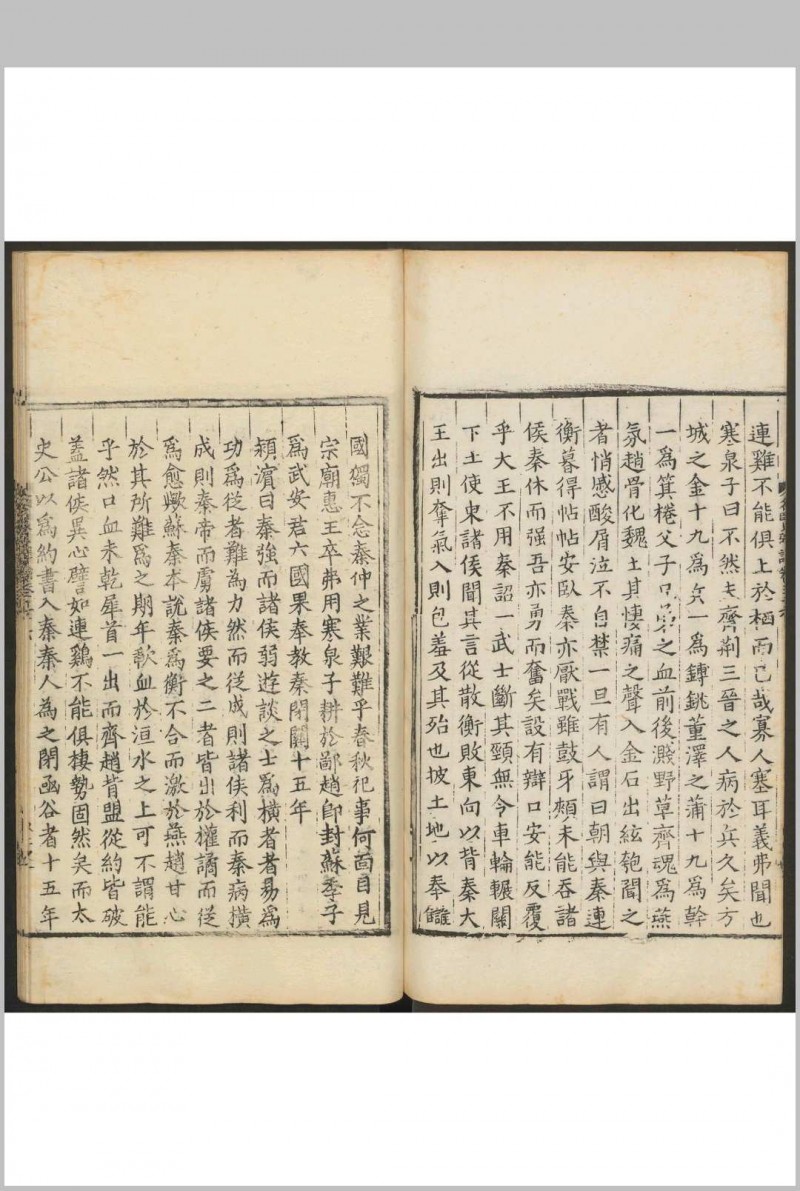 連雞不能俱上於栖而已哉寡人塞耳義弗聞也
寒泉子曰不然夫齊荆三晉之人病於兵久矣方
城之金十九爲兵一爲鎛銚董澤之蒲十九爲幹
一爲箕棬父子兄弟之血前後濺野草齊魂爲燕
氛趙骨化魏土其悽痛之聲入金石出絃匏聞之
者悄慼酸屑泣不自禁一旦有人謂曰朝與秦連
衡暮得帖帖安臥秦亦厭戰雖鼓牙頰未能吞諸
侯秦休而强吾亦勇而奮矣設有辯口安能反覆
乎大王不用秦詔一武士斷其頸無令車輪輾關
下土使東諸侯聞其言從散衡敗東向以背秦大
王出則奪氣入則包羞及其殆也披土地以奉讎
國獨不念秦仲之業艱難乎春秋祀事何面目見
宗廟惠王卒弗用寒泉子耕於鄙趙卽封蘇季子
爲武安君六國果奉教秦閉關十五年
潁濱曰秦強而諸侯弱遊談之士爲橫者易爲
功爲從者難為力然而從成則諸侯利而秦病橫
成則秦帝而虜諸侯要之二者皆出於權譎而從
爲愈歟蘇秦本說秦爲衡不合而激於燕趙甘心
於其所難爲之期年歃血於洹水之上可不謂能
乎然口血未乾犀首一出而齊趙背盟從約皆破
蓋諸侯異心譬如連鷄不能俱棲勢固然矣而太
史公以爲約書入秦秦人為之閉函谷者十五年